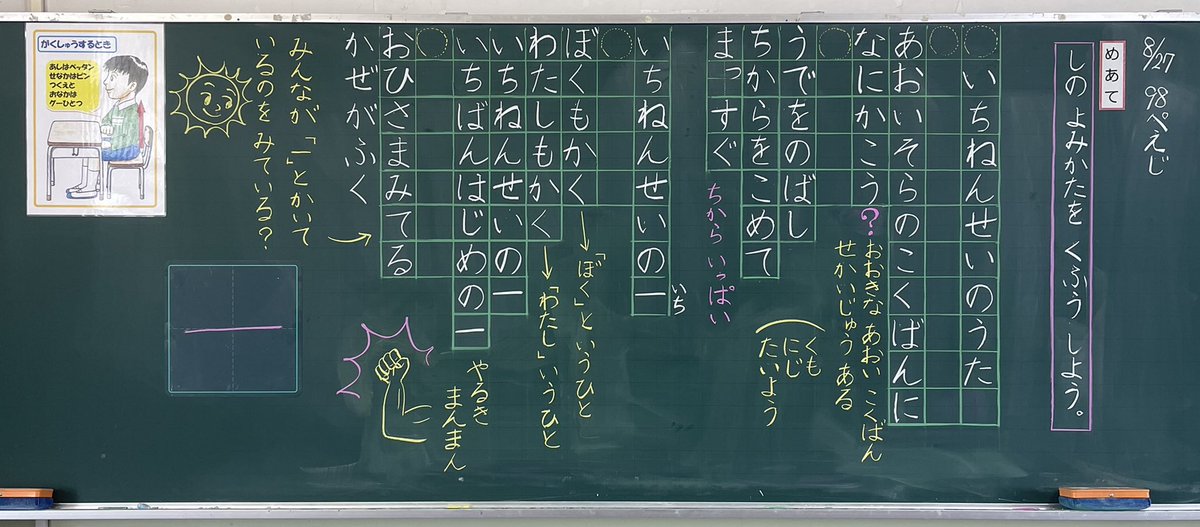 8/27 98ぺえじ
めあて
しの よみかたを くふう しよう。
いちねんせいのうた
あおいそらのこくばんに
なにかこう?
おおきな あおい こくばん
せかいじゅう ある
うでをのばし
くも
にじ
たいよう
ちからをこめて
まっすぐ
ちから いっぱい
いちねんせいの一
いち
ぼくもかく
→「ぼく」と いうひと
わたしもかく
→「わたし」いうひと
いちねんせいの一
いちばんはじめの一
やるき
まんまん
おひさまみてる
かぜがふく
みんなが、「一」とかいて
いるのを みている?
一
がくしゅうするとき
あしはペッタン
せなかはピン
つくえと
おなかは
グーひとつ